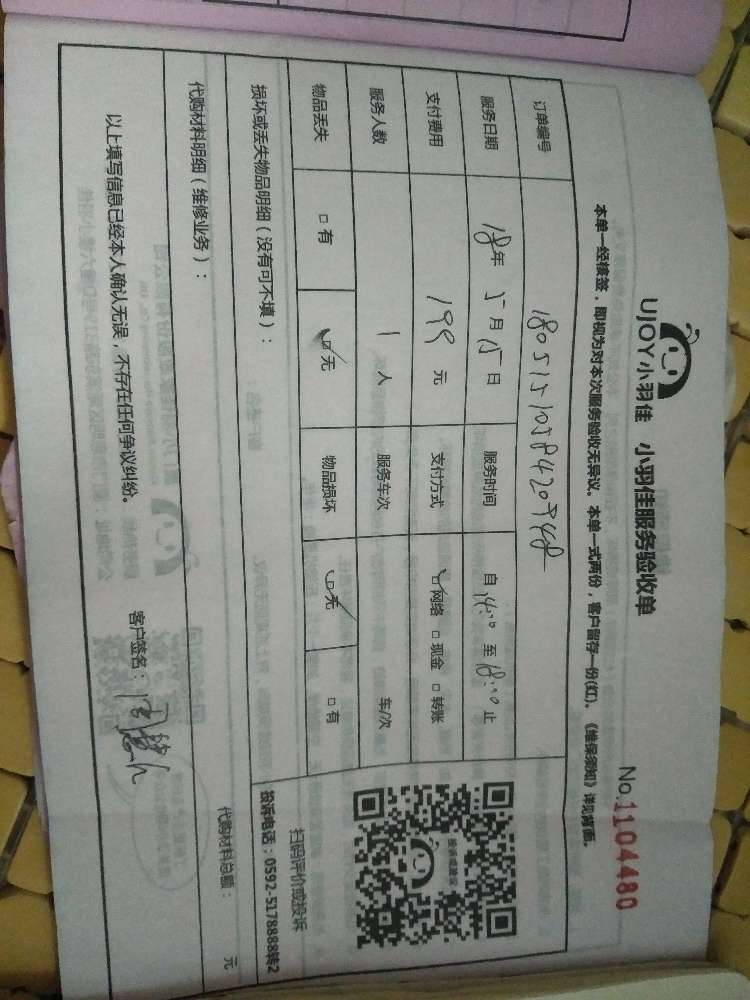 UJOY小羽佳 小羽佳服务验收单
No.1104480
本单一经核签，即视为对本次服务验收无异议。本单一式两份，客户留存一份(红)。《维保须知》详见背面。
订单编号
服务日期 18年 5月15日 服务时间 自14:00 至18:00 止
支付费用 199 元 支付方式 网络 □现金 □转账
服务人数 1 人 服务车次 车/次
物品丢失 □有 □无 物品损坏 □无 □有
损坏或丢失物品明细（没有可不填）：
扫码评价或投诉
投诉电话：0592-5178888转2
代购材料明细（维修业务）：
代购材料总额： 元
以上填写信息已经本人确认无误，不存在任何争议纠纷。
客户签名：